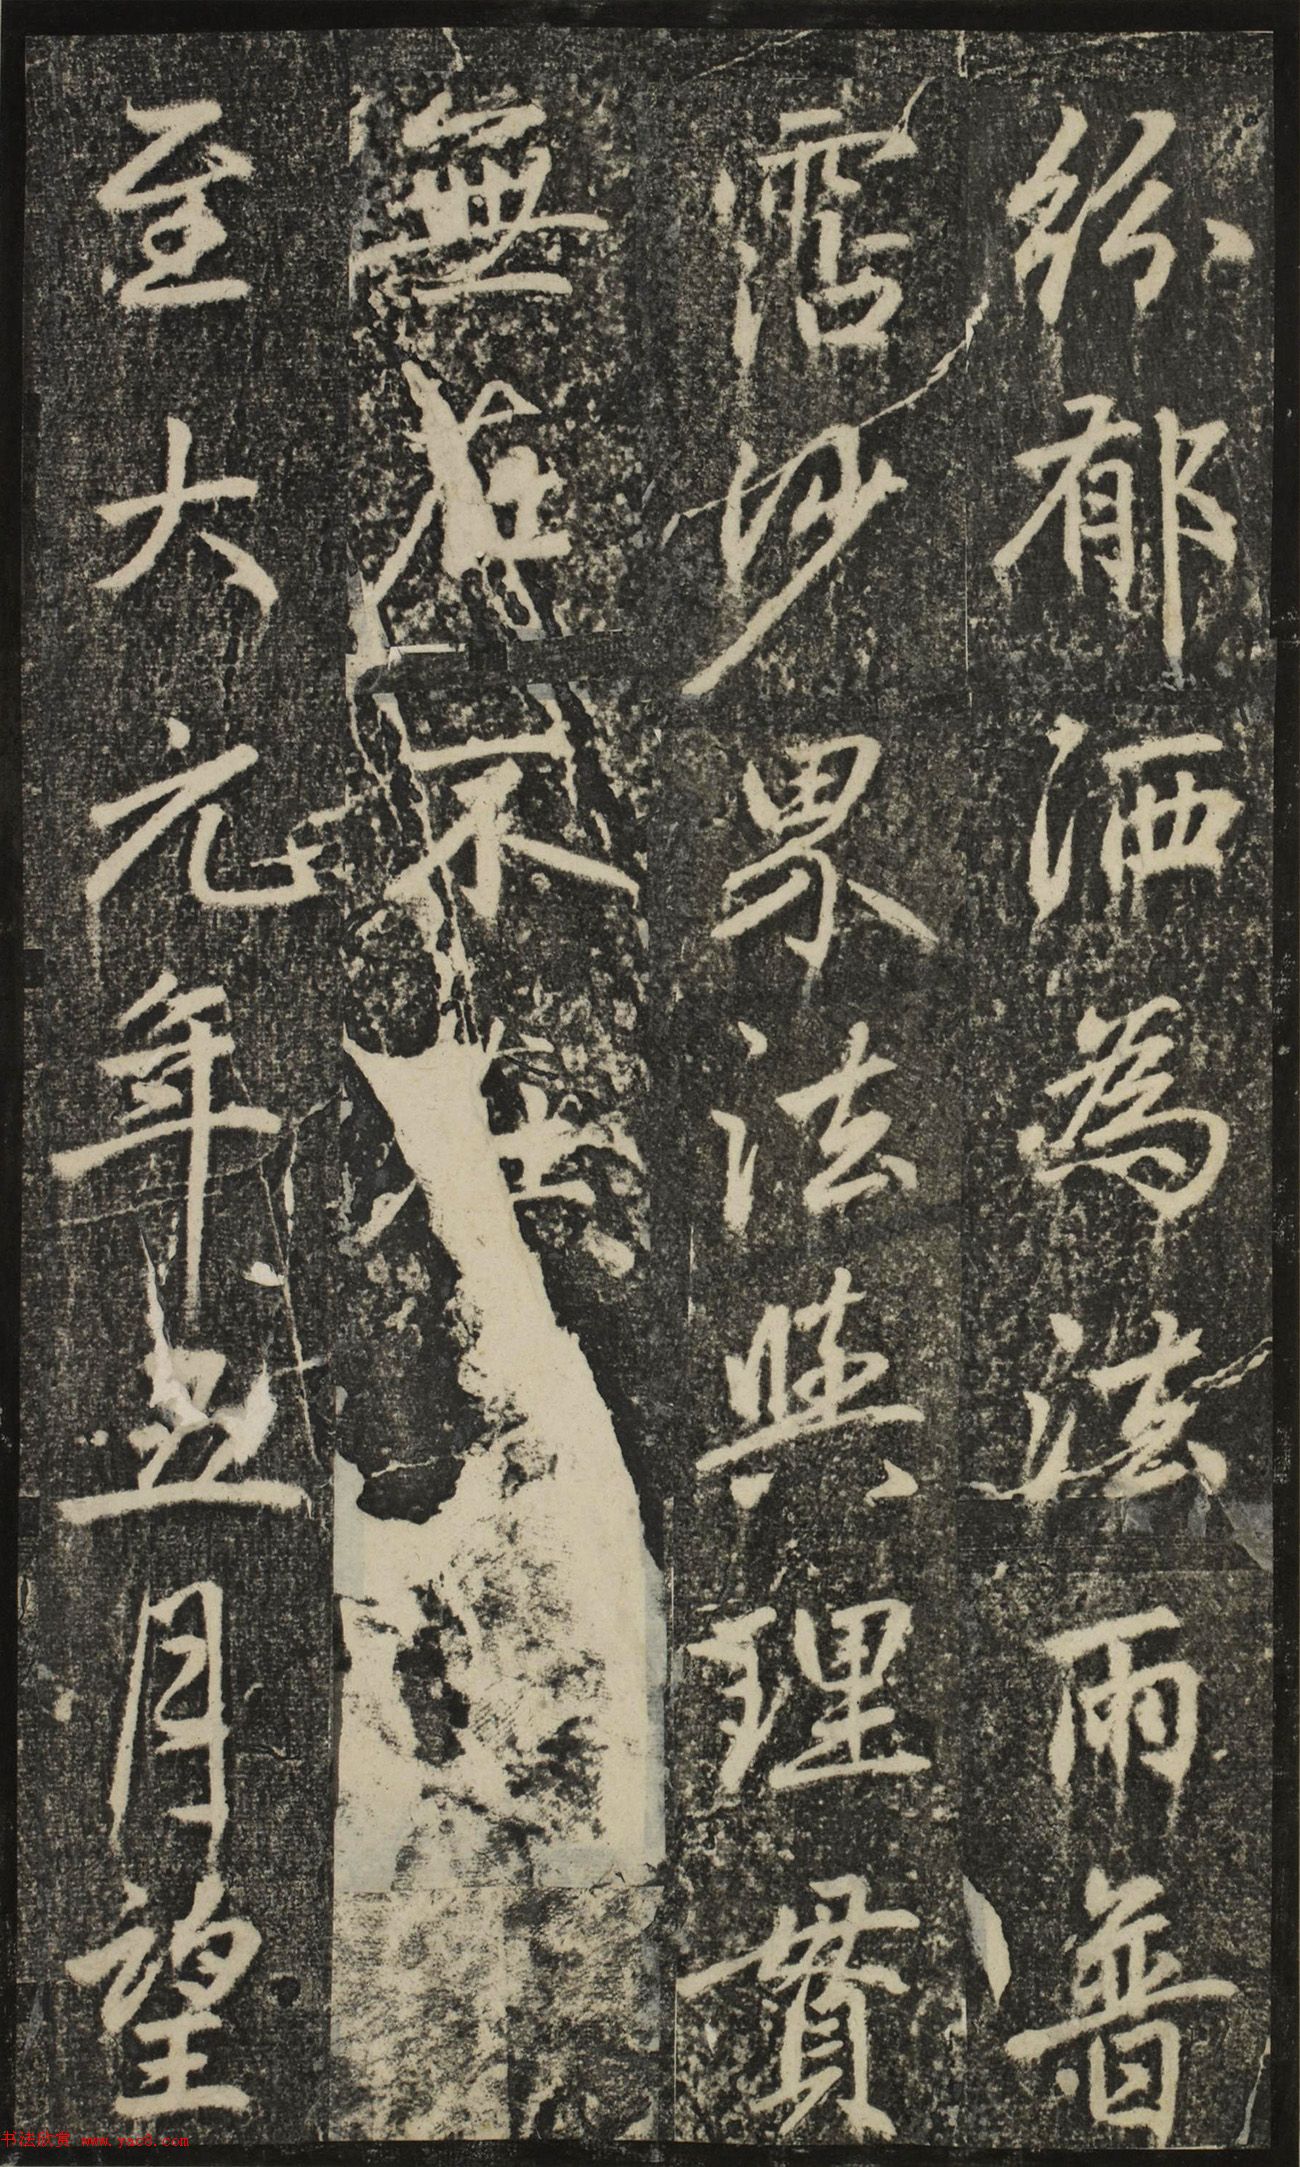 紛郁洒為法雨普
霑沙界法與理貫
無若不在
至大元年五月望
书法欣赏 www.yac8.com